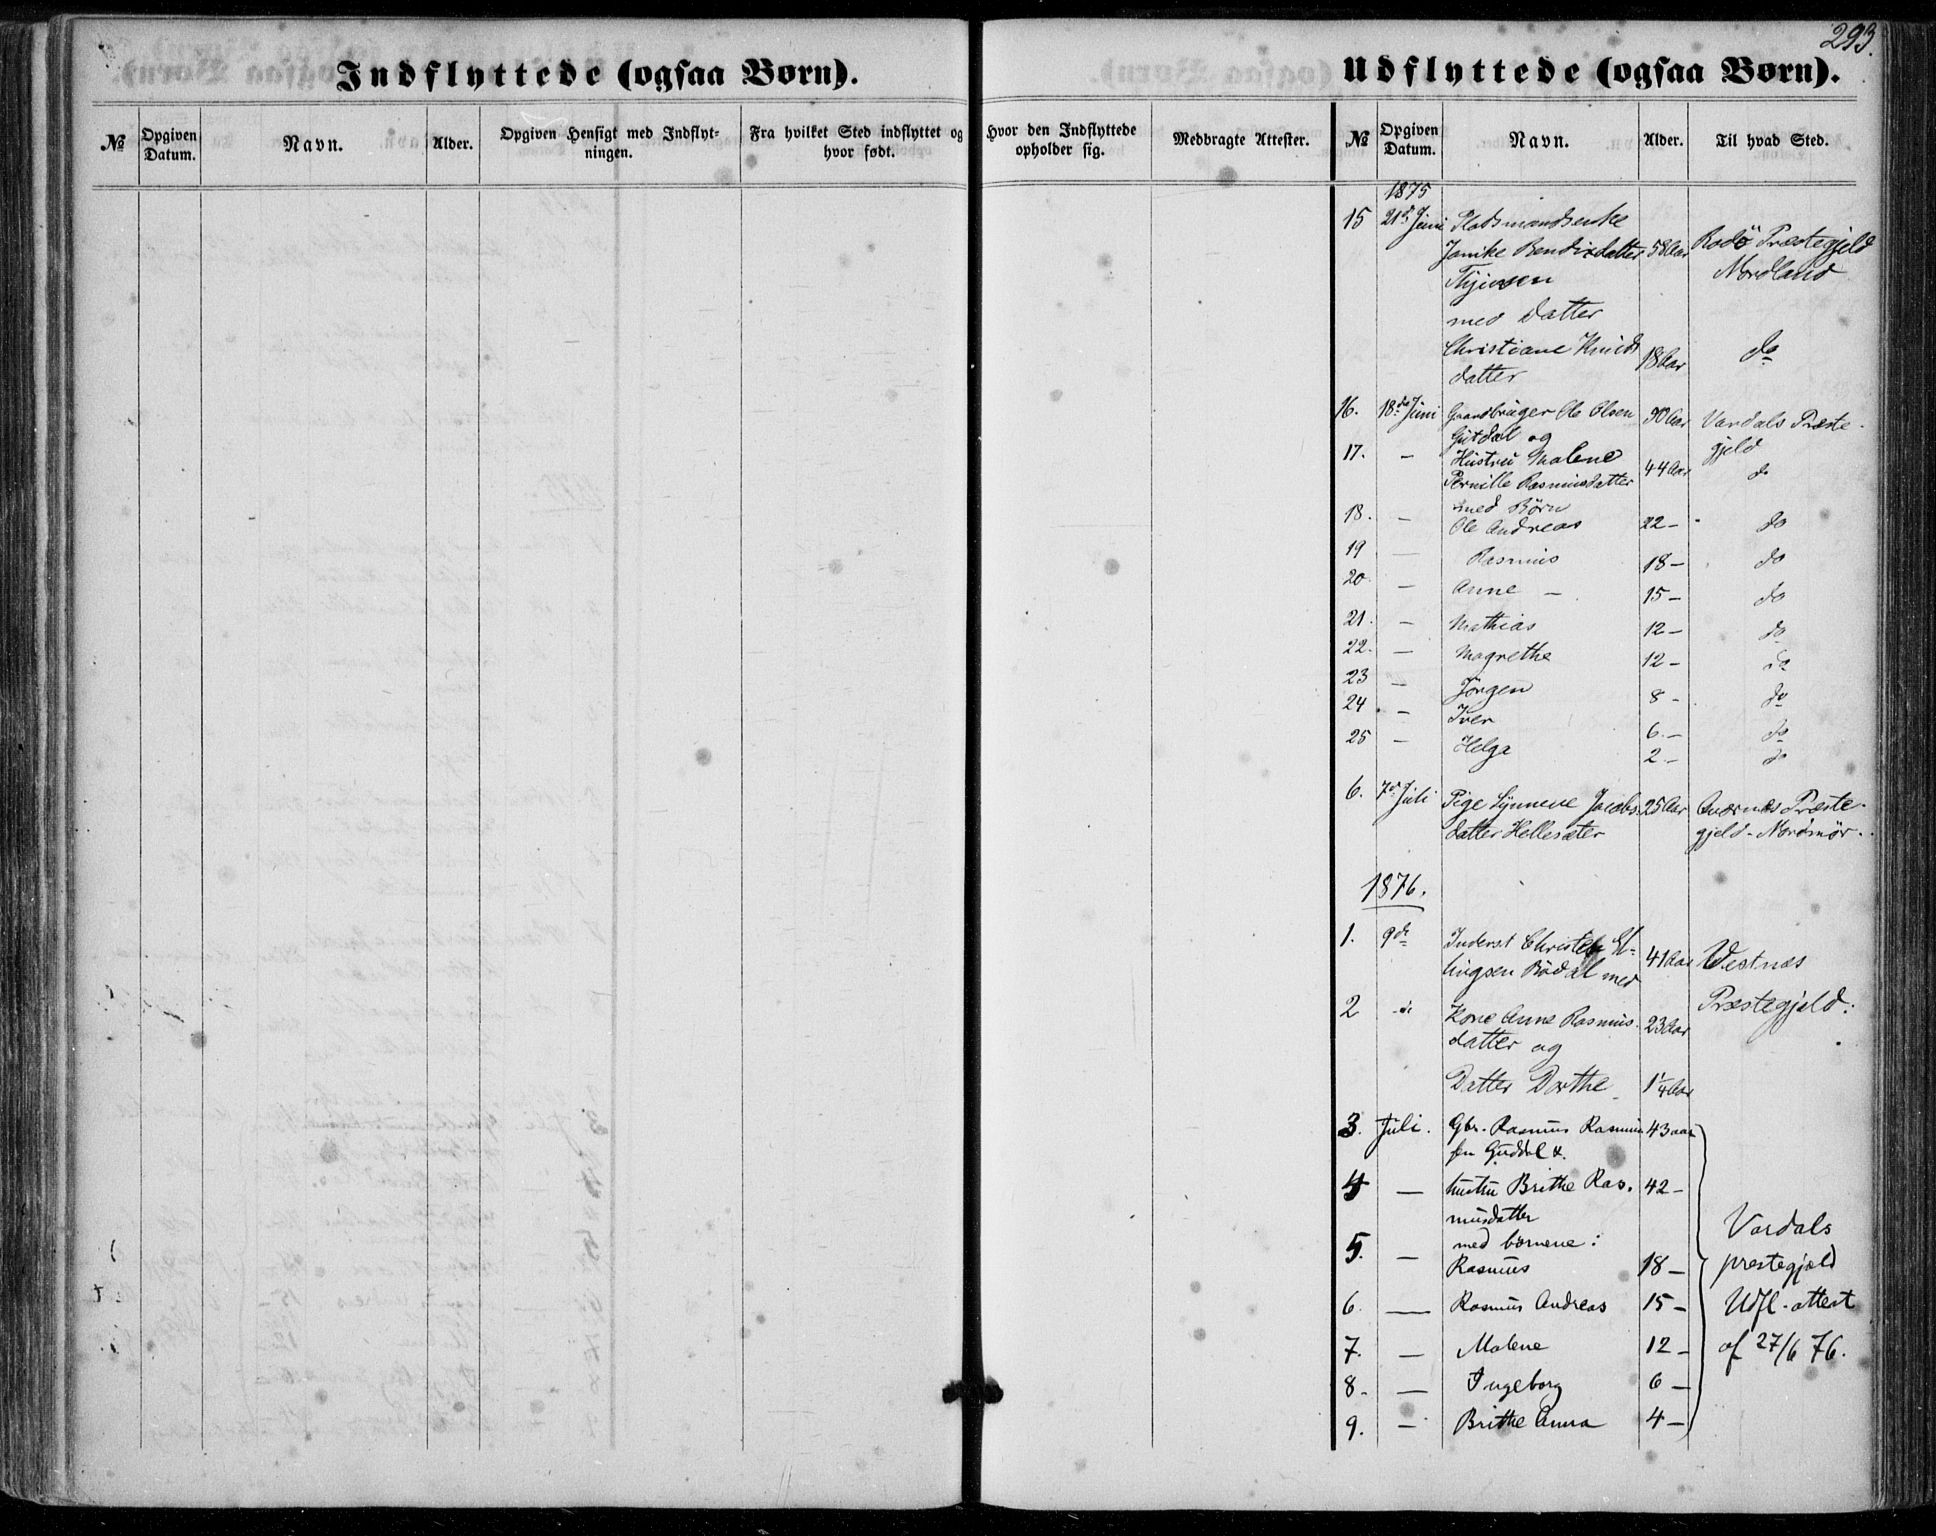 293.
Indflyttede (ogsaa Børn).
№
Opgiven Datum.
Navn.
Alder.
Opgiven Hensigt med Indflyt-
ningen.
Fra hvilket Sted indflyttet og
hvor født.
Hvor den Indflyttede
opholder sig.
Medbragte Attester.
Udflyttede (ogsaa Børn).
№
Opgiven Datum.
Navn.
Alder.
Til hvad Sted.
1875
15 21de Juni Pladsmandsenke
Janike Bendixdatter 58 Aar Rodö Præstegjeld
Nordland
med Datter
Christiane Knuds
datter 18 Aar do
16. 18de Juni Gaardbruger Ole Olsen Vardals Præste-
gjeld
og
17. - Hustru Malene
Pernille Rasmusdatter 44 Aar do
med Børn
18. - Ole Andreas 22 - do
19 - Rasmus 18 - do
20 - Anne - 15 - do
21. - Mathias 12 - do
22. - Magrethe 12 - do
23 - Jörgen 8 - do
24 - Iver 6 - do
25 - Helga 2 - do
6. 7de Juli Pige Synneve Jacobs- 25 Aar Præste-
datter Hellesæter gjeld - Nordmør.
1876.
1. 9de Inderst Christen El-
lingsen Bödal med 41 Aar Vestnæs
2 Kone Anne Rasmus- 23 Aar Præstegjeld.
datter og
Datter Dorthe 1¼ Aar
3. Juli. Gbr. Rasmus Rasmus 43 aar
sen Guddal &
4 - hustru Brithe Ras- 42 -
musdatter
med børnene:
5. - Rasmus 18 -
6. - Rasmus Andreas 15 -
7. - Malene 12 -
8. - Ingeborg 6 -
9. - Brithe Anna 4 -
Vardals
prestegjæld
Udfl-attest
af 27/6 76.